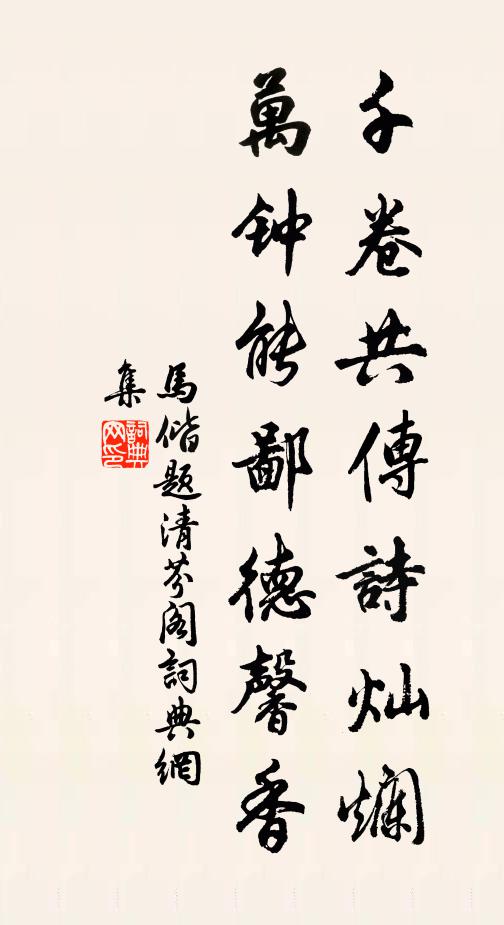 千卷共傳詩灿爛
萬钟能鄙德馨香
馬偕题清芬阁詞典網
集
詞典
网印